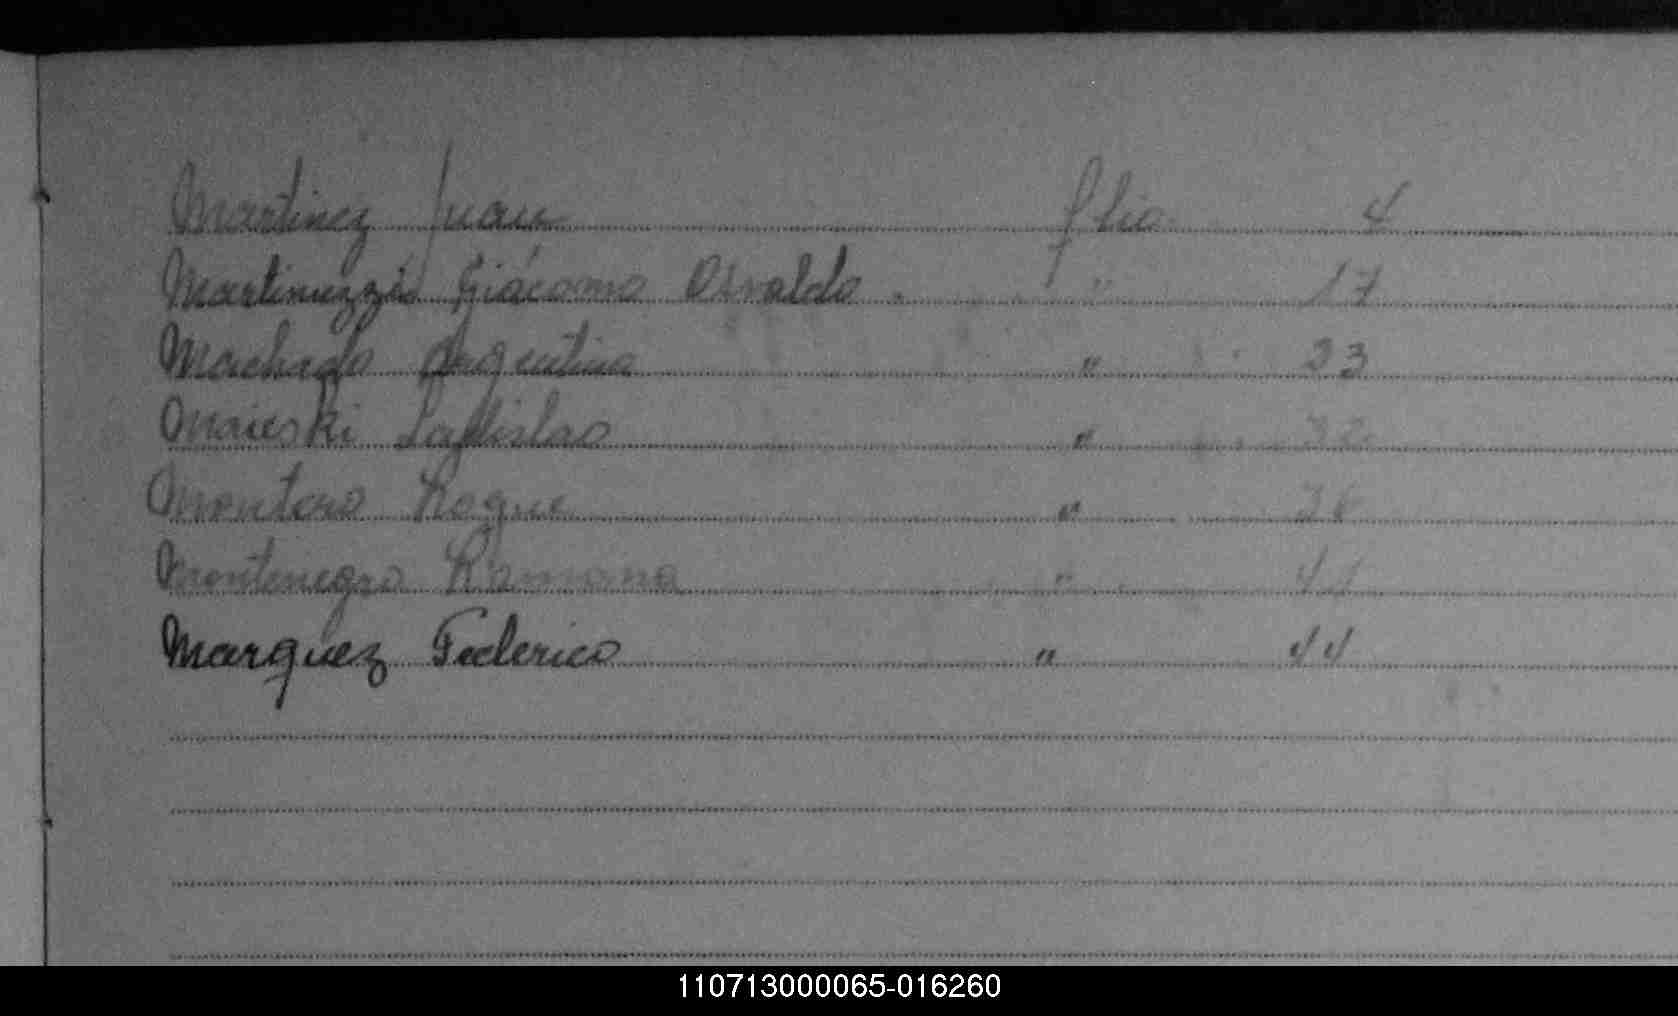 Martinez Juan flio. 4
Martinuzzi Giácomo Osvaldo . " 17
Machado Argentina " 23
Maieski Ladislao " 32
Montero Roque " 36
Montenegro Ramona " 41
Marquez Federico " 44
110713000065-016260